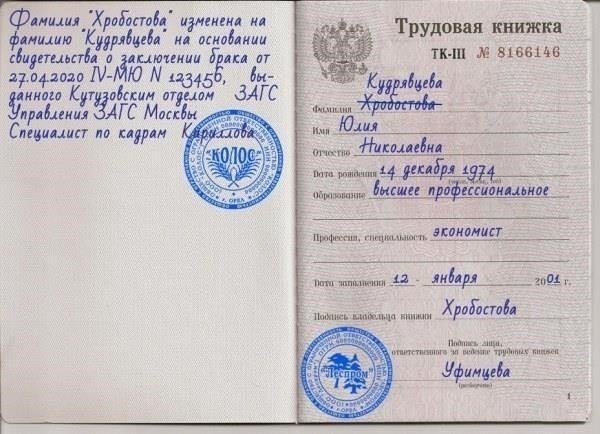 Фамилия "Хробостова" изменена на
фамилию "Кудрявцева" на основании
свидетельства о заключении брака от
27.04.2020 IV-МЮ N 123456, вы-
данного Кутузовским отделом ЗАГС
Управления ЗАГС Москвы
Специалист по кадрам Кириллова
"КОЛОС"
г. ОРЕЛ
Трудовая книжка
ТК-III № 8166146
Кудрявцева
Фамилия Хробостова
Имя Юлия
Отчество Николаевна
Дата рождения 14 декабря 1974
(число, месяц, год)
Образование высшее профессиональное
Профессия, специальность экономист
Дата заполнения 12 - января 2001 г.
Подпись владельца книжки Хробостова
Подпись лица,
ответственного за ведение трудовых книжек
Уфимцева
(разборчиво)
"Леспром"
1